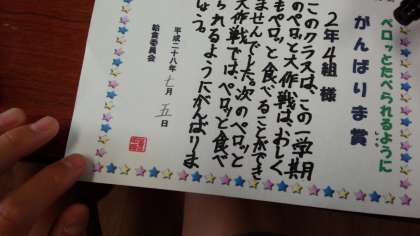 ペロッとたべられるように
がんばりま賞
2年4組 様
このクラスは、この一学期
のペロッと大作戦はおしく
もペロッと食べることができ
ませんでした。次のペロッと
大作戦では、ペロッと食べ
られるようにがんばりま
しょう。
平成二十八年 七月 五日
給食委員会